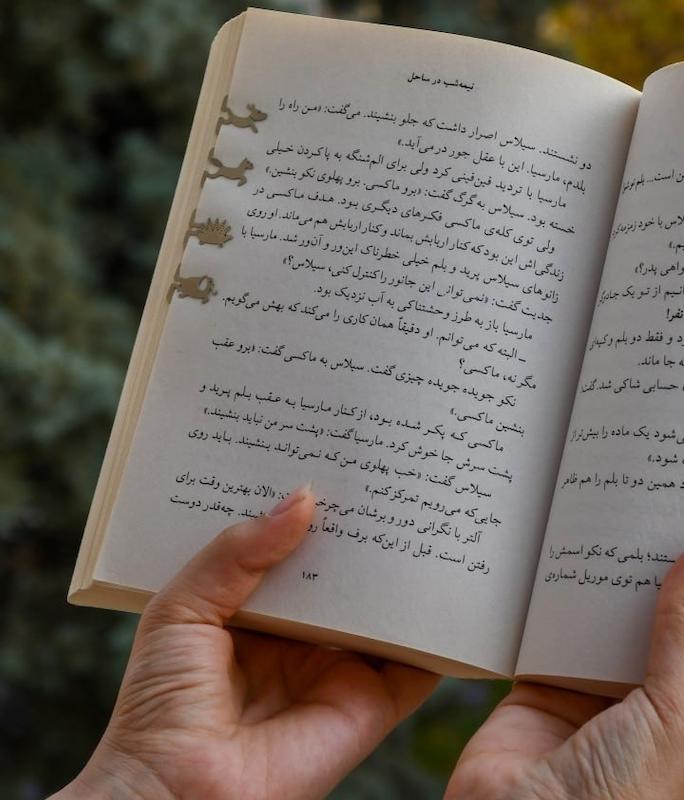 نیمه‌شب در ساحل
دو نشستند. سیلاس اصرار داشت که جلو بنشیند. می‌گفت: «من راه را
بلدم، مارسیا. این با عقل جور درمی‌آید.»
مارسیا با تردید فین‌فینی کرد ولی برای الم‌شنگه به پا کردن خیلی
خسته بود. سیلاس به گرگ گفت: «برو ماکسی. برو پهلوی نکو بنشین.»
ولی توی کله‌ی ماکسی فکرهای دیگری بود. هدف ماکسی در
زندگی‌اش این بود که کنار اربابش بماند و کنار اربابش هم می‌ماند. او روی
زانوهای سیلاس پرید و بلم خیلی خطرناک این‌ور و آن‌ور شد. مارسیا با
جدیت گفت: «نمی‌توانی این جانور را کنترل کنی، سیلاس؟»
مارسیا باز به طرز وحشتناکی به آب نزدیک بود.
ـ البته که می‌توانم. او دقیقاً همان کاری را می‌کند که بهش می‌گویم.
مگر نه، ماکسی؟
نکو جویده جویده چیزی گفت. سیلاس به ماکسی گفت: «برو عقب
بنشین ماکسی.»
ماکسی که پکر شده بود، از کنار مارسیا به عقب بلم پرید و
پشت سرش جا خوش کرد. مارسیا گفت: «پشت سر من نباید بنشیند.»
سیلاس گفت: «خب پهلوی من که نمی‌تواند بنشیند. باید روی
جایی که می‌رویم تمرکز کنم.»
آلتر با نگرانی دور و برشان می‌چرخید «الان بهترین وقت برای
رفتن است. قبل از این‌که برف واقعاً چه‌قدر دوست
۱۸۳
ن است... بلم
لاس با خود
یم.»
واهی پدر؟»
انیم از تو یک
نفر!
د و فقط دو بلم و
جا ماند.
حسابی شاکی شد. گفت:
ی‌شود یک ماده را بیش‌تر از
شود.»
همین دو تا بلم را هم ظاهر
ستند؛ بلمی که نکو اسمش را
یا هم توی موریل شماره‌ی